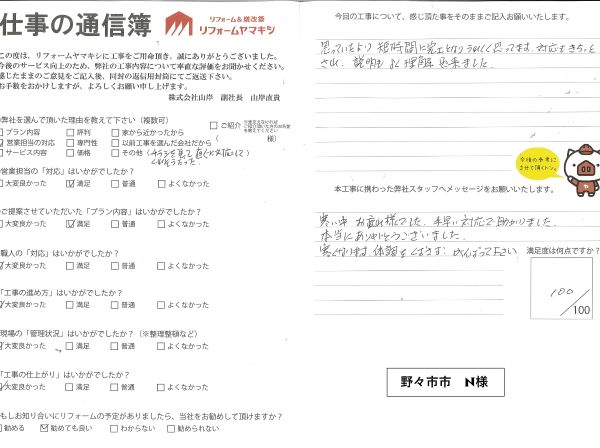 仕事の通信簿
リフォーム&増改築
リフォームヤマキシ
この度は、リフォームヤマキシに工事をご用命頂き、誠にありがとうございました。
今後のサービス向上のため、弊社の工事内容について率直な評価をお聞かせください。
感じたままのご意見をご記入後、同封の返信用封筒にてご返送下さい。
お手数をおかけしますが、よろしくお願い申し上げます。
株式会社山岸 副社長 山岸直貴
弊社を選んで頂いた理由を教えて下さい(複数可)
□ご紹介
プラン内容 □評判 □家から近かったから
営業担当の対応 □専門性 □以前工事を頼んだ会社だから
サービス内容 □価格 □その他(チラシを見て
営業担当の「対応」はいかがでしたか?
大変良かった ☑満足 □普通 □よくなかった
ご提案させていただいた「プラン内容」はいかがでしたか?
大変良かった ☑満足 □普通 □よくなかった
職人の「対応」はいかがでしたか?
☑大変良かった □満足 □普通 □よくなかった
「工事の進め方」はいかがでしたか?
☑大変良かった □満足 □普通 □よくなかった
現場の「管理状況」はいかがでしたか?(※整理整頓など)
☑大変良かった □満足 □普通 □よくなかった
「工事の仕上がり」はいかがでしたか?
☑大変良かった □満足 □普通 □よくなかった
もしお知り合いにリフォームの予定がありましたら、当社をお勧めして頂けますか?
□勧める ☑勧めても良い □わからない □勧められない
今回の工事について、感じ頂た事をそのままご記入お願いいたします。
思っていたより短時間に完工となりうれしく思ってます。対応もきちっと
され、説明もよく理解出来ました。
今後の参考に
させて頂くトン。
本工事に携わった弊社スタッフへメッセージをお願いいたします。
寒い中お疲れ様でした。手早い対応で助かりました。
本当にありがとうございました。
寒くなります。体調をくずさずに がんばって下さい
満足度は何点ですか?
100
/100
野々市市 N様